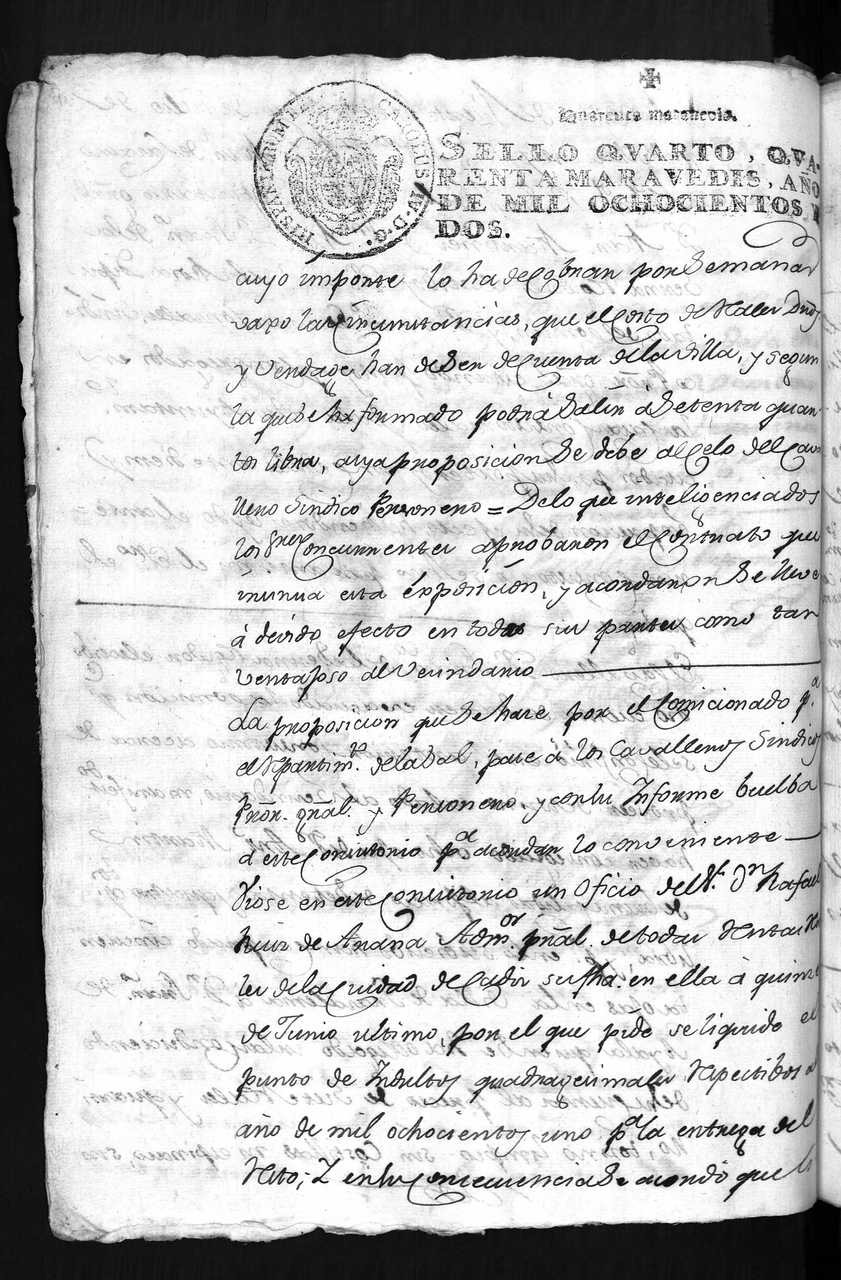 Quarenta maravedis.
SELLO QVARTO, QVA-
RENTA MARAVEDIS, AÑO
DE MIL OCHOCIENTOS Y
DOS.
CAROLUS IV D.G. HISPANIAR. REX
cuyo importe lo ha de Cobrar por Semanas
vaxo las Circunstancias, que el Costo de
y Vendage, han de Ser de Cuenta de la Villa, y segun
la que Se ha formado podrá Salir a Setenta quar-
tos libra, cuya proposicion Se debe al Celo del Cava
llero Sindico Personero = De lo que inteligenciados
los Sres Concurrentes aprobaron el Contrato que
incinua esta exposición, y acordaron Se lleve
á devido efecto en todas sus partes como tan
ventajoso al Vecindario
La proposicion que Se hace por el Comicionado pa
el Repartimto de la Sal, pase á los Cavalleros Sindicos
Prór. grál. y Personero, y con su Informe buelba
a este Concistorio pa acordar lo conveniente
Viose en este Concistorio un Oficio del Sr. Dn Rafael
Ruiz de Arana Admor prál. de todas Rentas Rea
les de la Ciudad de Cadiz su fha. en ella á quince
de Junio ultimo, por el que pide se liquide el
punto de Indultos quadragecimales respectibos al
año de mil ochocientos uno pa la entrega del
Resto; Y en su Consecuencia Se acordó que